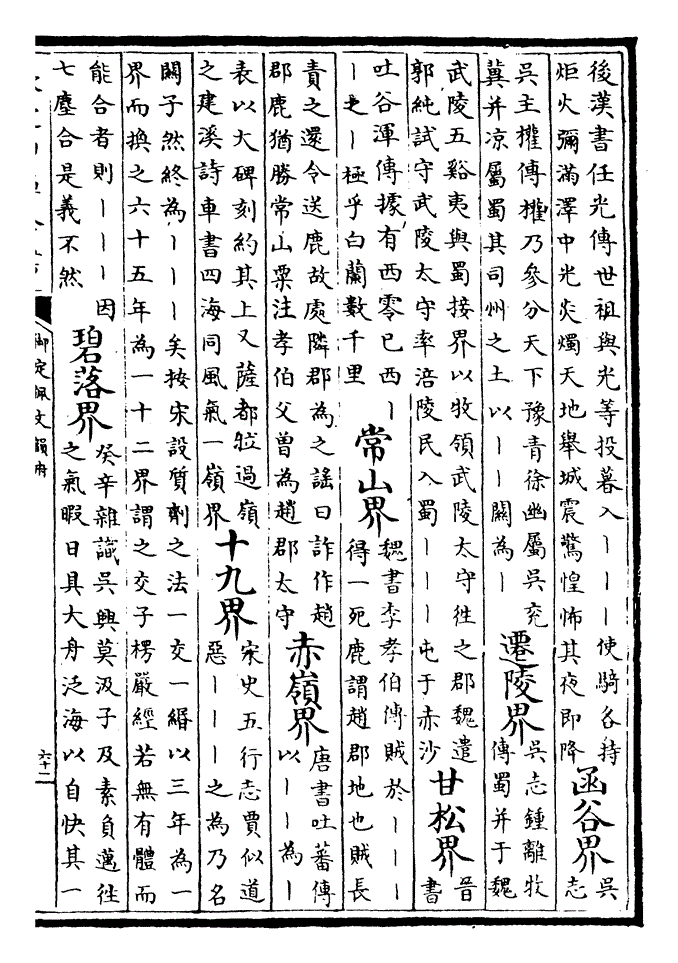 後漢書任光傳世祖與光等投暮入｜｜｜使騎各持
炬火彌滿澤中光炎燭天地舉城震驚惶怖其夜即降
函谷界
吳
志
吳主權傳權乃參分天下豫青徐幽屬吳兖
冀并凉屬蜀其司州之土以｜｜關為｜
遷陵界
吳志鍾離牧
傳蜀并于魏
武陵五谿夷與蜀接界以牧領武陵太守往之郡魏遣
郭純試守武陵太守率涪陵民入蜀｜｜｜屯于赤沙
甘松界
晉
書
吐谷渾傳據有西零已西｜
｜之｜極乎白蘭數千里
常山界
魏書李孝伯傳賊於｜｜｜
得一死鹿謂趙郡地也賊長
責之還令送鹿故處隣郡為之謠曰詐作趙
郡鹿猶勝常山粟注孝伯父曾為趙郡太守
赤嶺界
唐書吐蕃傳
以｜｜為｜
表以大碑刻約其上又薩都㓨過嶺
之建溪詩車書四海同風氣一嶺界
十九界
宋史五行志賈似道
惡｜｜｜之為乃名
關子然終為｜｜｜矣按宋設質劑之法一交一緡以三年為一
界而換之六十五年為一十二界謂之交子楞嚴經若無有體而
能合者則｜｜｜因
七塵合是義不然
碧落界
癸辛雜識吳興莫汲子及素負邁往
之氣暇日具大舟泛海以自快其一
御定佩文韻府
六十二